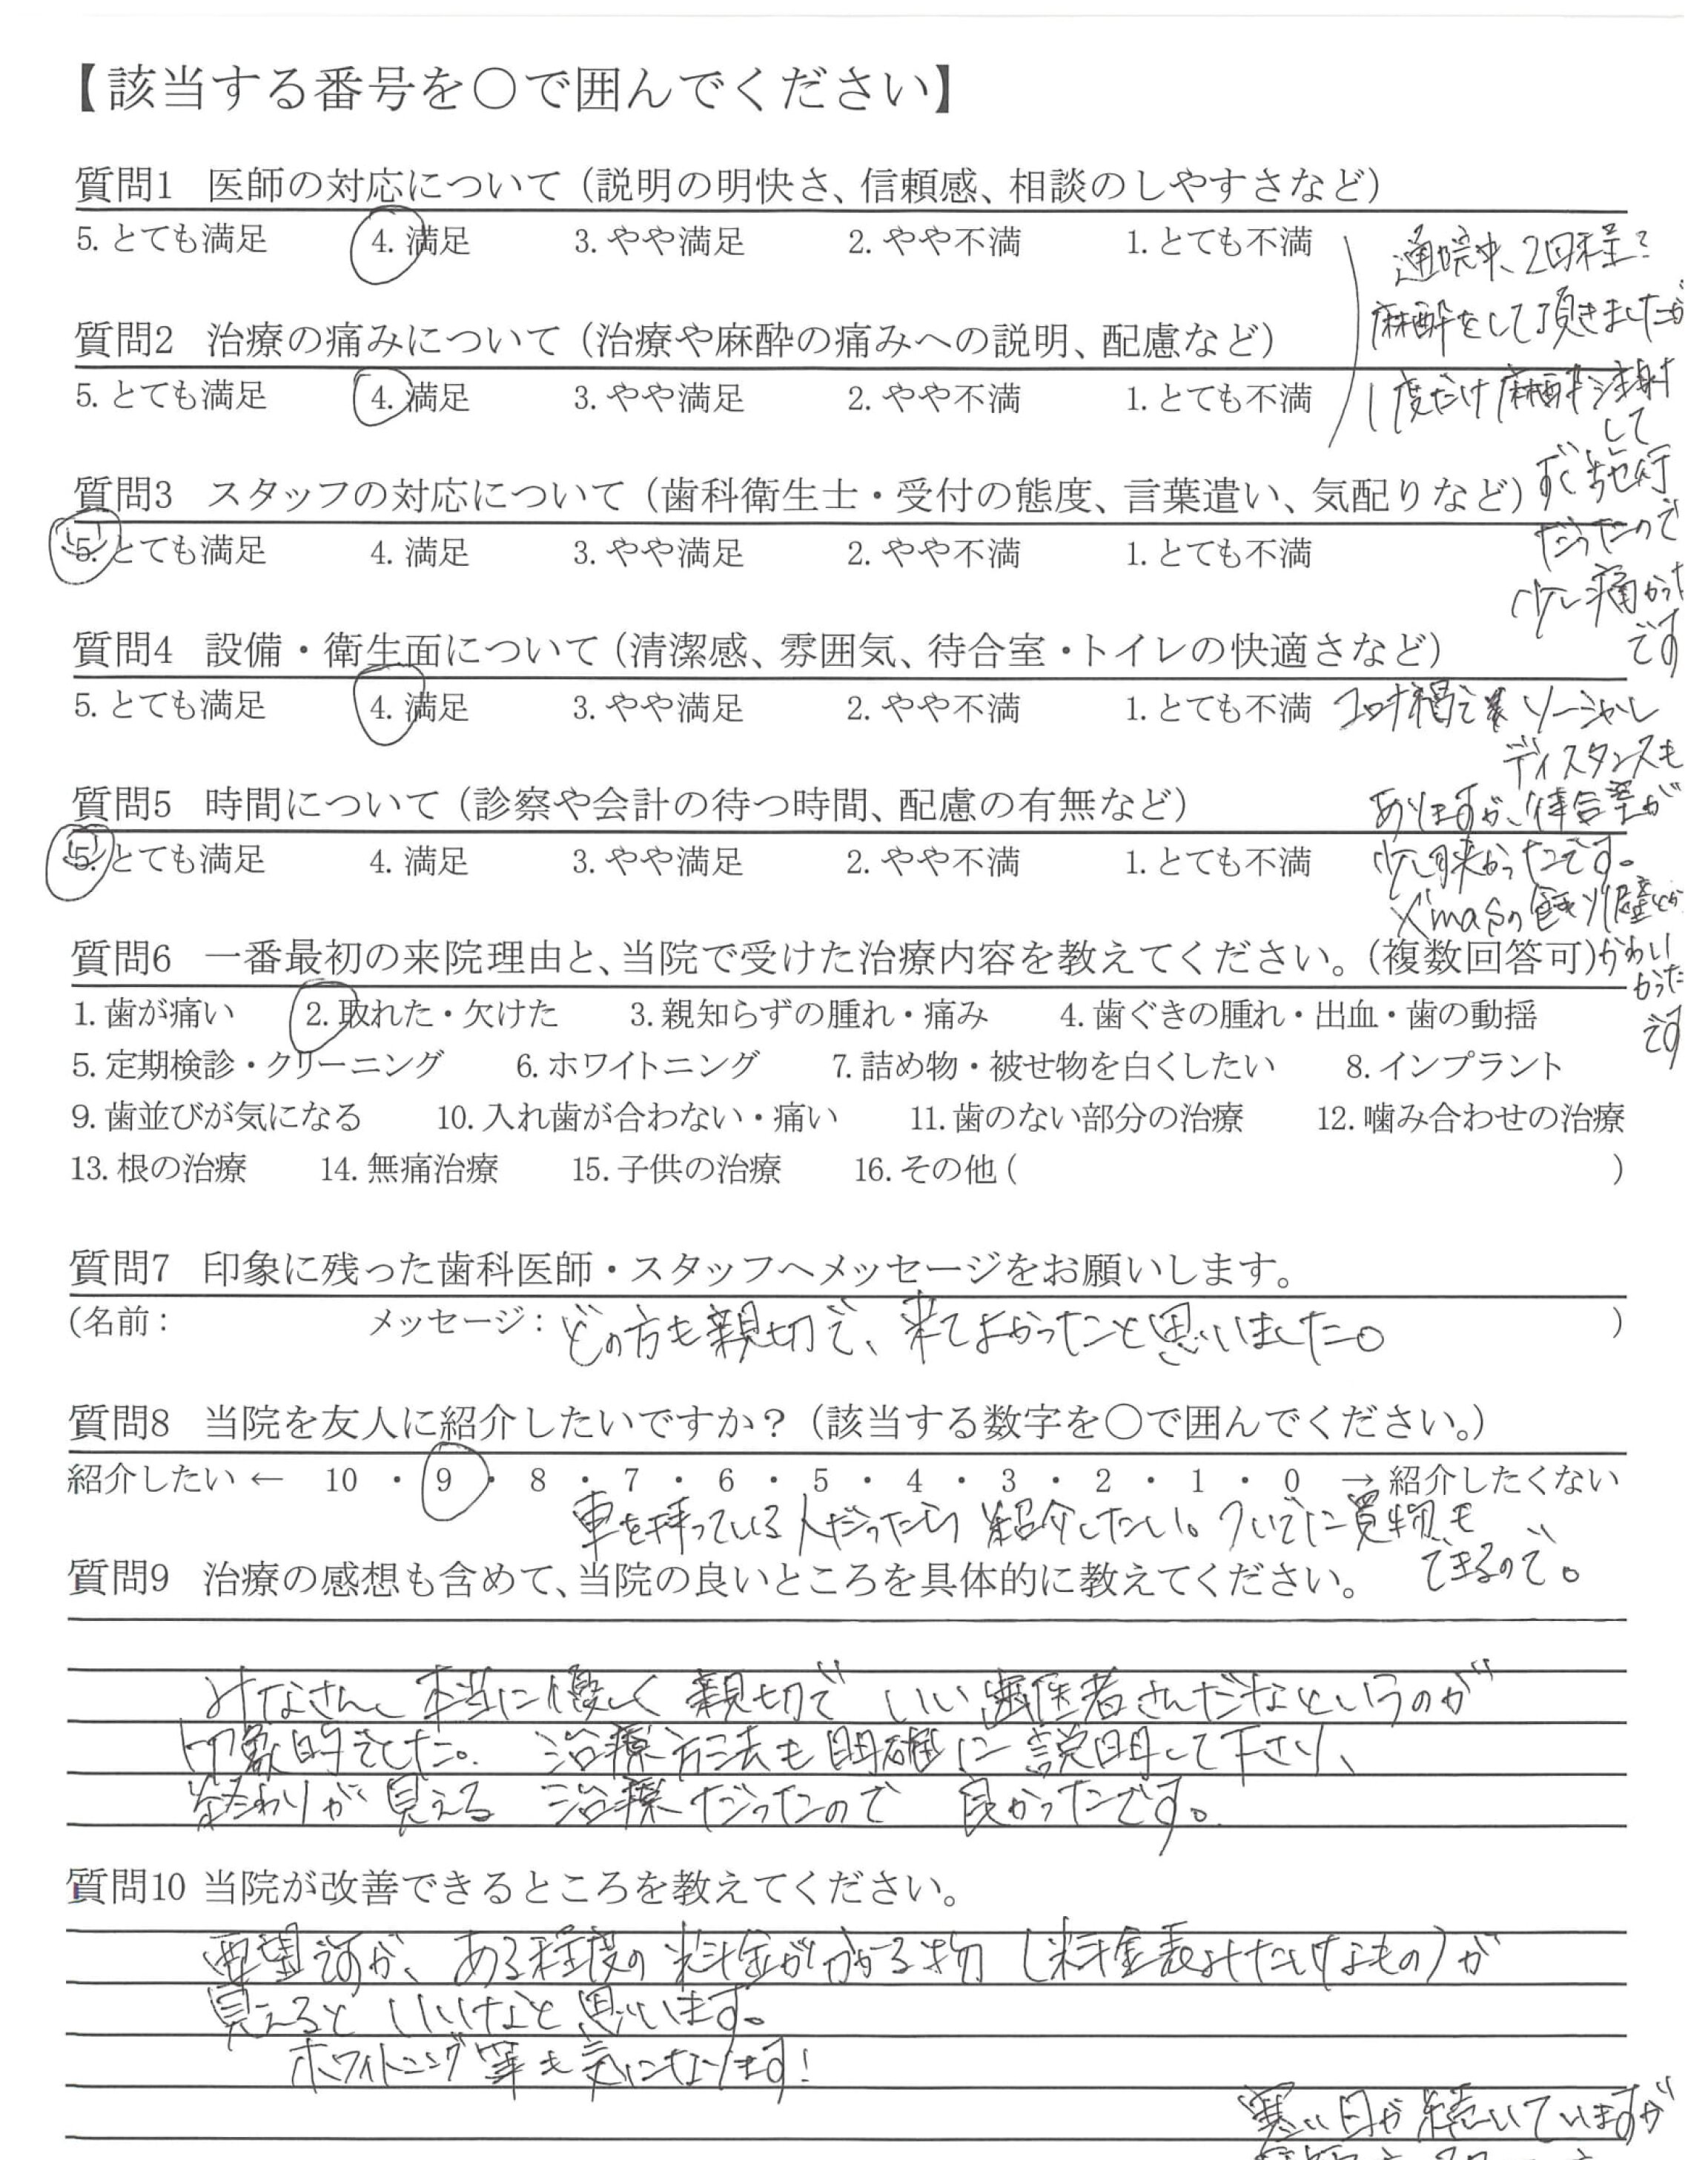 【該当する番号を〇で囲んでください】
質問1 医師の対応について（説明の明快さ、信頼感、相談のしやすさなど）
5. とても満足 4. 満足 3. やや満足 2. やや不満 1. とても不満
通院中、2回程?
麻酔をして頂きましたが
1度だけ麻酔注射
して
すぐ施行
だったので
少し痛かった
です
質問2 治療の痛みについて（治療や麻酔の痛みへの説明、配慮など）
5. とても満足 4. 満足 3. やや満足 2. やや不満 1. とても不満
質問3 スタッフの対応について（歯科衛生士・受付の態度、言葉遣い、気配りなど）
5. とても満足 4. 満足 3. やや満足 2. やや不満 1. とても不満
質問4 設備・衛生面について（清潔感、雰囲気、待合室・トイレの快適さなど）
5. とても満足 4. 満足 3. やや満足 2. やや不満 1. とても不満
コロナ禍で ソーシャル
ディスタンスも
ありますが、待合室が
少し かったです。
X'masの飾り 壁とか
かわい
かった
です
質問5 時間について（診察や会計の待つ時間、配慮の有無など）
5. とても満足 4. 満足 3. やや満足 2. やや不満 1. とても不満
質問6 一番最初の来院理由と、当院で受けた治療内容を教えてください。（複数回答可）
1. 歯が痛い 2. 取れた・欠けた 3. 親知らずの腫れ・痛み 4. 歯ぐきの腫れ・出血・歯の動揺
5. 定期検診・クリーニング 6. ホワイトニング 7. 詰め物・被せ物を白くしたい 8. インプラント
9. 歯並びが気になる 10. 入れ歯が合わない・痛い 11. 歯のない部分の治療 12. 噛み合わせの治療
13. 根の治療 14. 無痛治療 15. 子供の治療 16. その他（ ）
質問7 印象に残った歯科医師・スタッフへメッセージをお願いします。
（名前： メッセージ：どの方も親切で、来てよかったと思いました。 ）
質問8 当院を友人に紹介したいですか？（該当する数字を〇で囲んでください。）
紹介したい ← 10 ・ 9 ・ 8 ・ 7 ・ 6 ・ 5 ・ 4 ・ 3 ・ 2 ・ 1 ・ 0 → 紹介したくない
車を持っている人だったら 紹介したい。ついでに買物も
できるので。
質問9 治療の感想も含めて、当院の良いところを具体的に教えてください。
みなさん、本当に優しく 親切で いい歯医者さんだなというのが
印象的でした。 治療方法も明確に説明して下さり、
終わりが見える 治療だったので 良かったです。
質問10 当院が改善できるところを教えてください。
要望ですが、ある程度の料金が分かる物（料金表みたいなもの）が
見えると いいなと思います。
ホワイトニング等も気になります!
寒い日が続いていますが